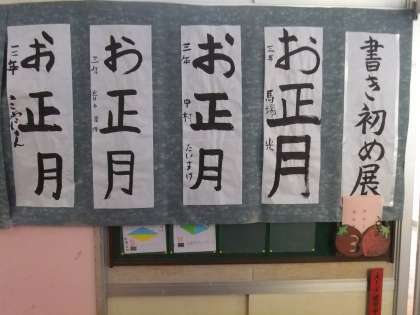 書き初め展
お正月
三年 馬場
お正月
三年 中村 たいすけ
お正月
三年
お正月
三年